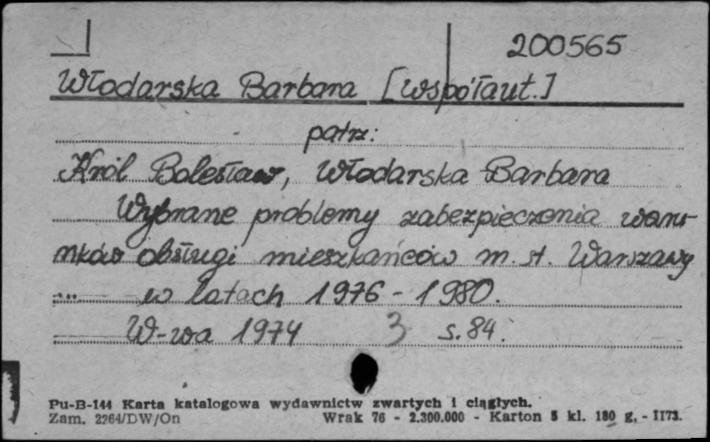 200565
Włodarska Barbara [współaut.]
patrz:
Król Bolesław, Włodarska Barbara
Wybrane problemy zabezpieczenia waru-
nków obsługi mieszkańców m. st. Warszawy
... w latach 1976 - 1980.
W-wa 1974 3 s. 84.
Pu-B-144 Karta katalogowa wydawnictw zwartych i ciągłych.
Zam. 2264/DW/On Wrak 76 - 2.300.000 - Karton 5 kl. 180 g. - II73.